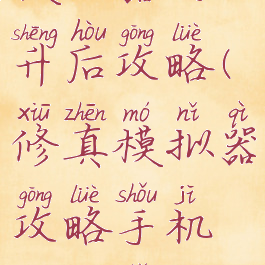 shēng hòu gōng lüè
升后攻略(
xiū zhēn mó nǐ qì
修真模拟器
gōng lüè shǒu jī
攻略手机